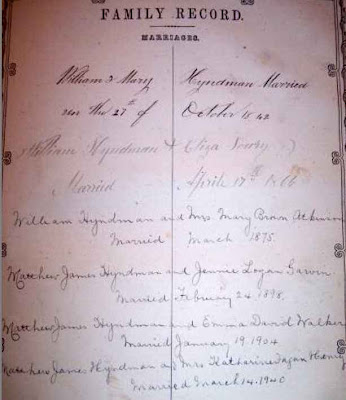 FAMILY RECORD.
MARRIAGES.
William & Mary Hyndman Married
on the 27th of October 1842
William Hyndman & Eliza
Married April 17th 1866
William Hyndman and Mrs. Mary Brown Atkinson
Married March 1875.
Matthew James Hyndman and Jennie Logan Garvin
Married February 24 1898.
Matthew James Hyndman and Emma David Walker
Married January 19, 1904
Matthew James Hyndman and Mrs Katharine Fagan Henry
Married March 14. 1940